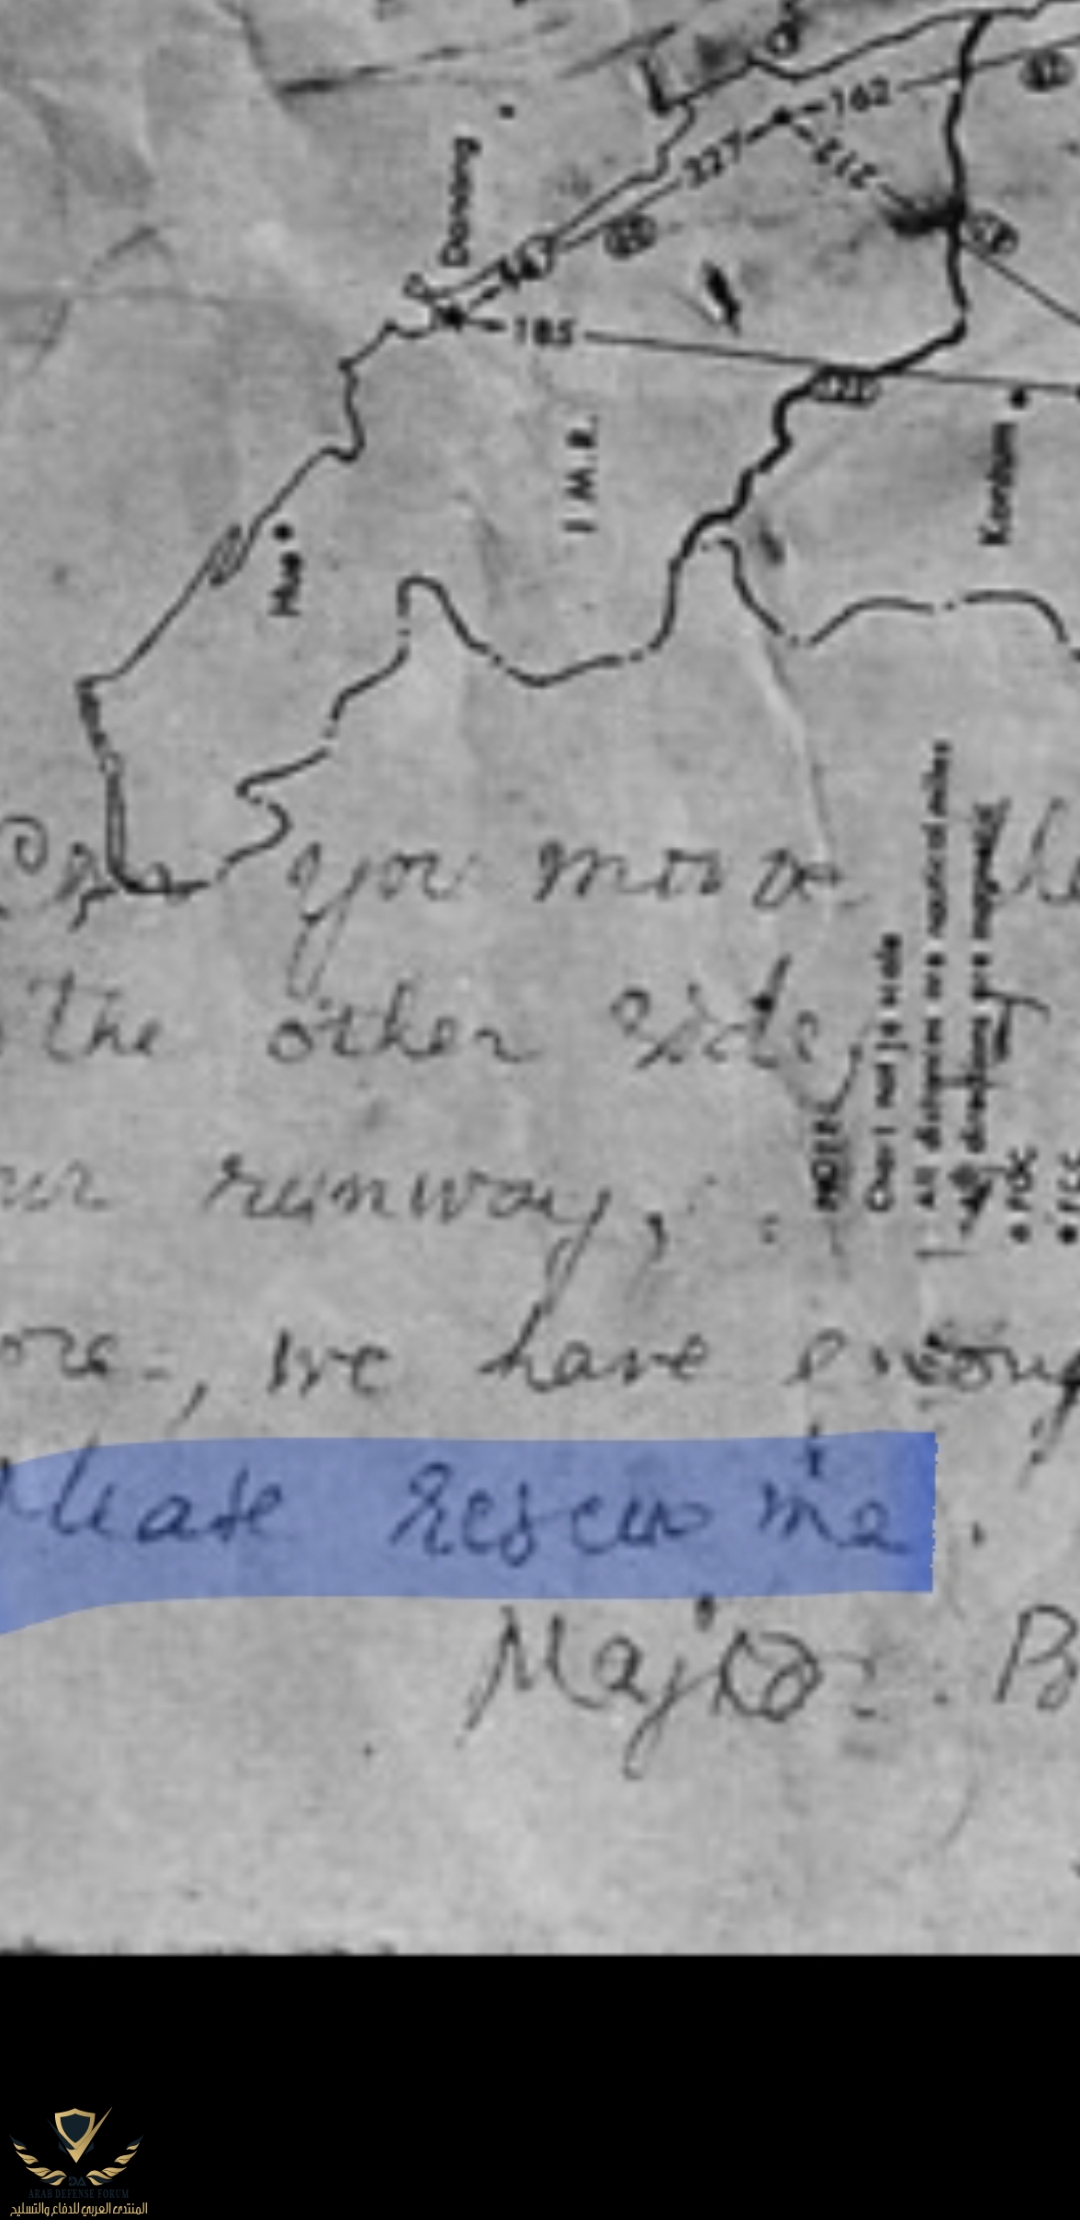 162
327
212
Danang
185
I M.R.
Kontum
Hue
NOTE
Chart not to scale
All distances are nautical miles
All directions are magnetic
Can you move
the other side,
runway,
we have
please rescue me.
Major. B
ARAB DEFENSE FORUM
المنتدى العربي للدفاع والتسليح